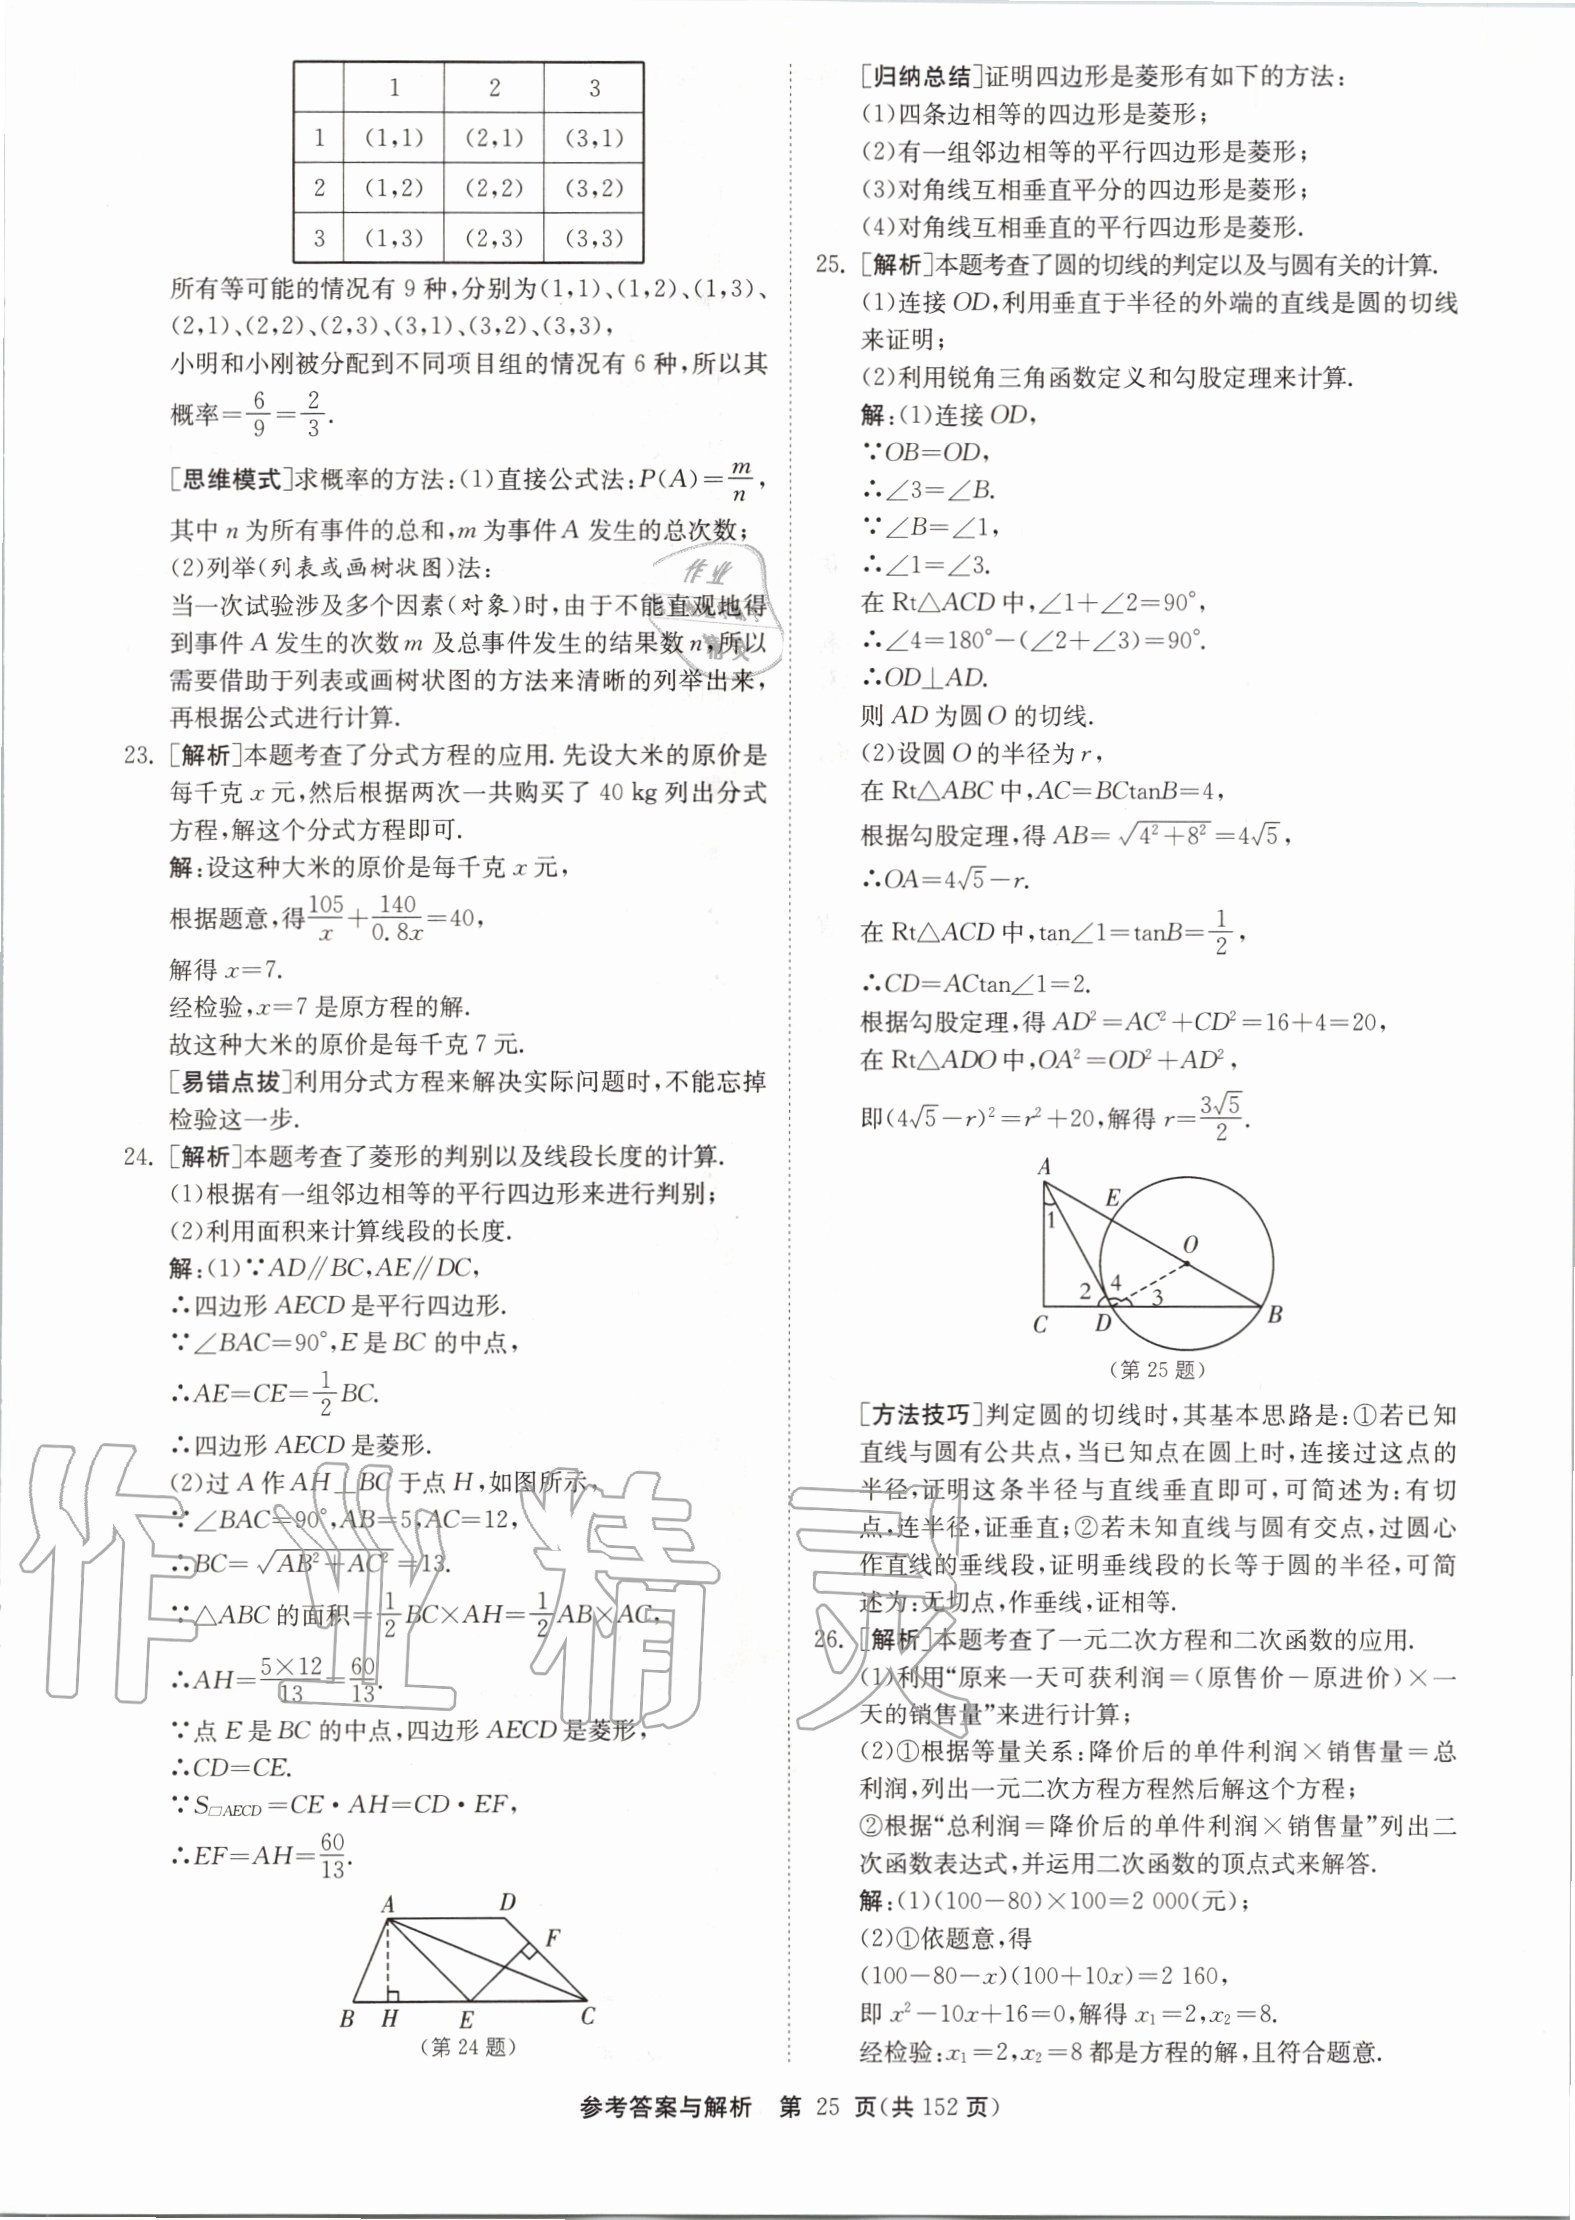 1 2 3
1 (1,1) (2,1) (3,1)
2 (1,2) (2,2) (3,2)
3 (1,3) (2,3) (3,3)
所有等可能的情况有 9 种,分别为(1,1)、(1,2)、(1,3)、
(2,1)、(2,2)、(2,3)、(3,1)、(3,2)、(3,3),
小明和小刚被分配到不同项目组的情况有 6 种,所以其
概率=6/9=2/3.
[思维模式]求概率的方法:(1)直接公式法:P(A)=m/n,
其中 n 为所有事件的总和,m 为事件 A 发生的总次数;
(2)列举(列表或画树状图)法:
当一次试验涉及多个因素(对象)时,由于不能直观地得
到事件 A 发生的次数 m 及总事件发生的结果数 n,所以
需要借助于列表或画树状图的方法来清晰的列举出来,
再根据公式进行计算.
23. [解析]本题考查了分式方程的应用. 先设大米的原价是
每千克 x 元,然后根据两次一共购买了 40 kg 列出分式
方程,解这个分式方程即可.
解:设这种大米的原价是每千克 x 元,
根据题意,得105/x+140/0.8x=40,
解得 x=7.
经检验,x=7 是原方程的解.
故这种大米的原价是每千克 7 元.
[易错点拔]利用分式方程来解决实际问题时,不能忘掉
检验这一步.
24. [解析]本题考查了菱形的判别以及线段长度的计算.
(1)根据有一组邻边相等的平行四边形来进行判别;
(2)利用面积来计算线段的长度.
解:(1)∵AD∥BC,AE∥DC,
∴四边形 AECD 是平行四边形.
∵∠BAC=90°,E 是 BC 的中点,
∴AE=CE=1/2BC.
∴四边形 AECD 是菱形.
(2)过 A 作 AH⊥BC 于点 H,如图所示,
∵∠BAC=90°,AB=5,AC=12,
∴BC=√(AB²+AC²)=13.
∵△ABC 的面积=1/2BC×AH=1/2AB×AC,
∴AH=5×12/13=60/13.
∵点 E 是 BC 的中点,四边形 AECD 是菱形,
∴CD=CE.
∵S▱AECD=CE·AH=CD·EF,
∴EF=AH=60/13.
A D F B H E C
(第 24 题)
[归纳总结]证明四边形是菱形有如下的方法:
(1)四条边相等的四边形是菱形;
(2)有一组邻边相等的平行四边形是菱形;
(3)对角线互相垂直平分的四边形是菱形;
(4)对角线互相垂直的平行四边形是菱形.
25. [解析]本题考查了圆的切线的判定以及与圆有关的计算.
(1)连接 OD,利用垂直于半径的外端的直线是圆的切线
来证明;
(2)利用锐角三角函数定义和勾股定理来计算.
解:(1)连接 OD,
∵OB=OD,
∴∠3=∠B.
∵∠B=∠1,
∴∠1=∠3.
在 Rt△ACD 中,∠1+∠2=90°,
∴∠4=180°-(∠2+∠3)=90°.
∴OD⊥AD.
则 AD 为圆 O 的切线.
(2)设圆 O 的半径为 r,
在 Rt△ABC 中,AC=BCtanB=4,
根据勾股定理,得 AB=√(4²+8²)=4√5,
∴OA=4√5-r.
在 Rt△ACD 中,tan∠1=tanB=1/2,
∴CD=ACtan∠1=2.
根据勾股定理,得 AD²=AC²+CD²=16+4=20,
在 Rt△ADO 中,OA²=OD²+AD²,
即(4√5-r)²=r²+20,解得 r=3√5/2.
A 1 E O 2 4 3 C D B
(第 25 题)
[方法技巧]判定圆的切线时,其基本思路是:①若已知
直线与圆有公共点,当已知点在圆上时,连接过这点的
半径,证明这条半径与直线垂直即可,可简述为:有切
点,连半径,证垂直;②若未知直线与圆有交点,过圆心
作直线的垂线段,证明垂线段的长等于圆的半径,可简
述为:无切点,作垂线,证相等.
26. [解析]本题考查了一元二次方程和二次函数的应用.
(1)利用“原来一天可获利润=(原售价-原进价)×一
天的销售量”来进行计算;
(2)①根据等量关系:降价后的单件利润×销售量=总
利润,列出一元二次方程方程然后解这个方程;
②根据“总利润=降价后的单件利润×销售量”列出二
次函数表达式,并运用二次函数的顶点式来解答.
解:(1)(100-80)×100=2 000(元);
(2)①依题意,得
(100-80-x)(100+10x)=2 160,
即 x²-10x+16=0,解得 x₁=2,x₂=8.
经检验:x₁=2,x₂=8 都是方程的解,且符合题意.
参考答案与解析 第 25 页(共 152 页)
作业精灵